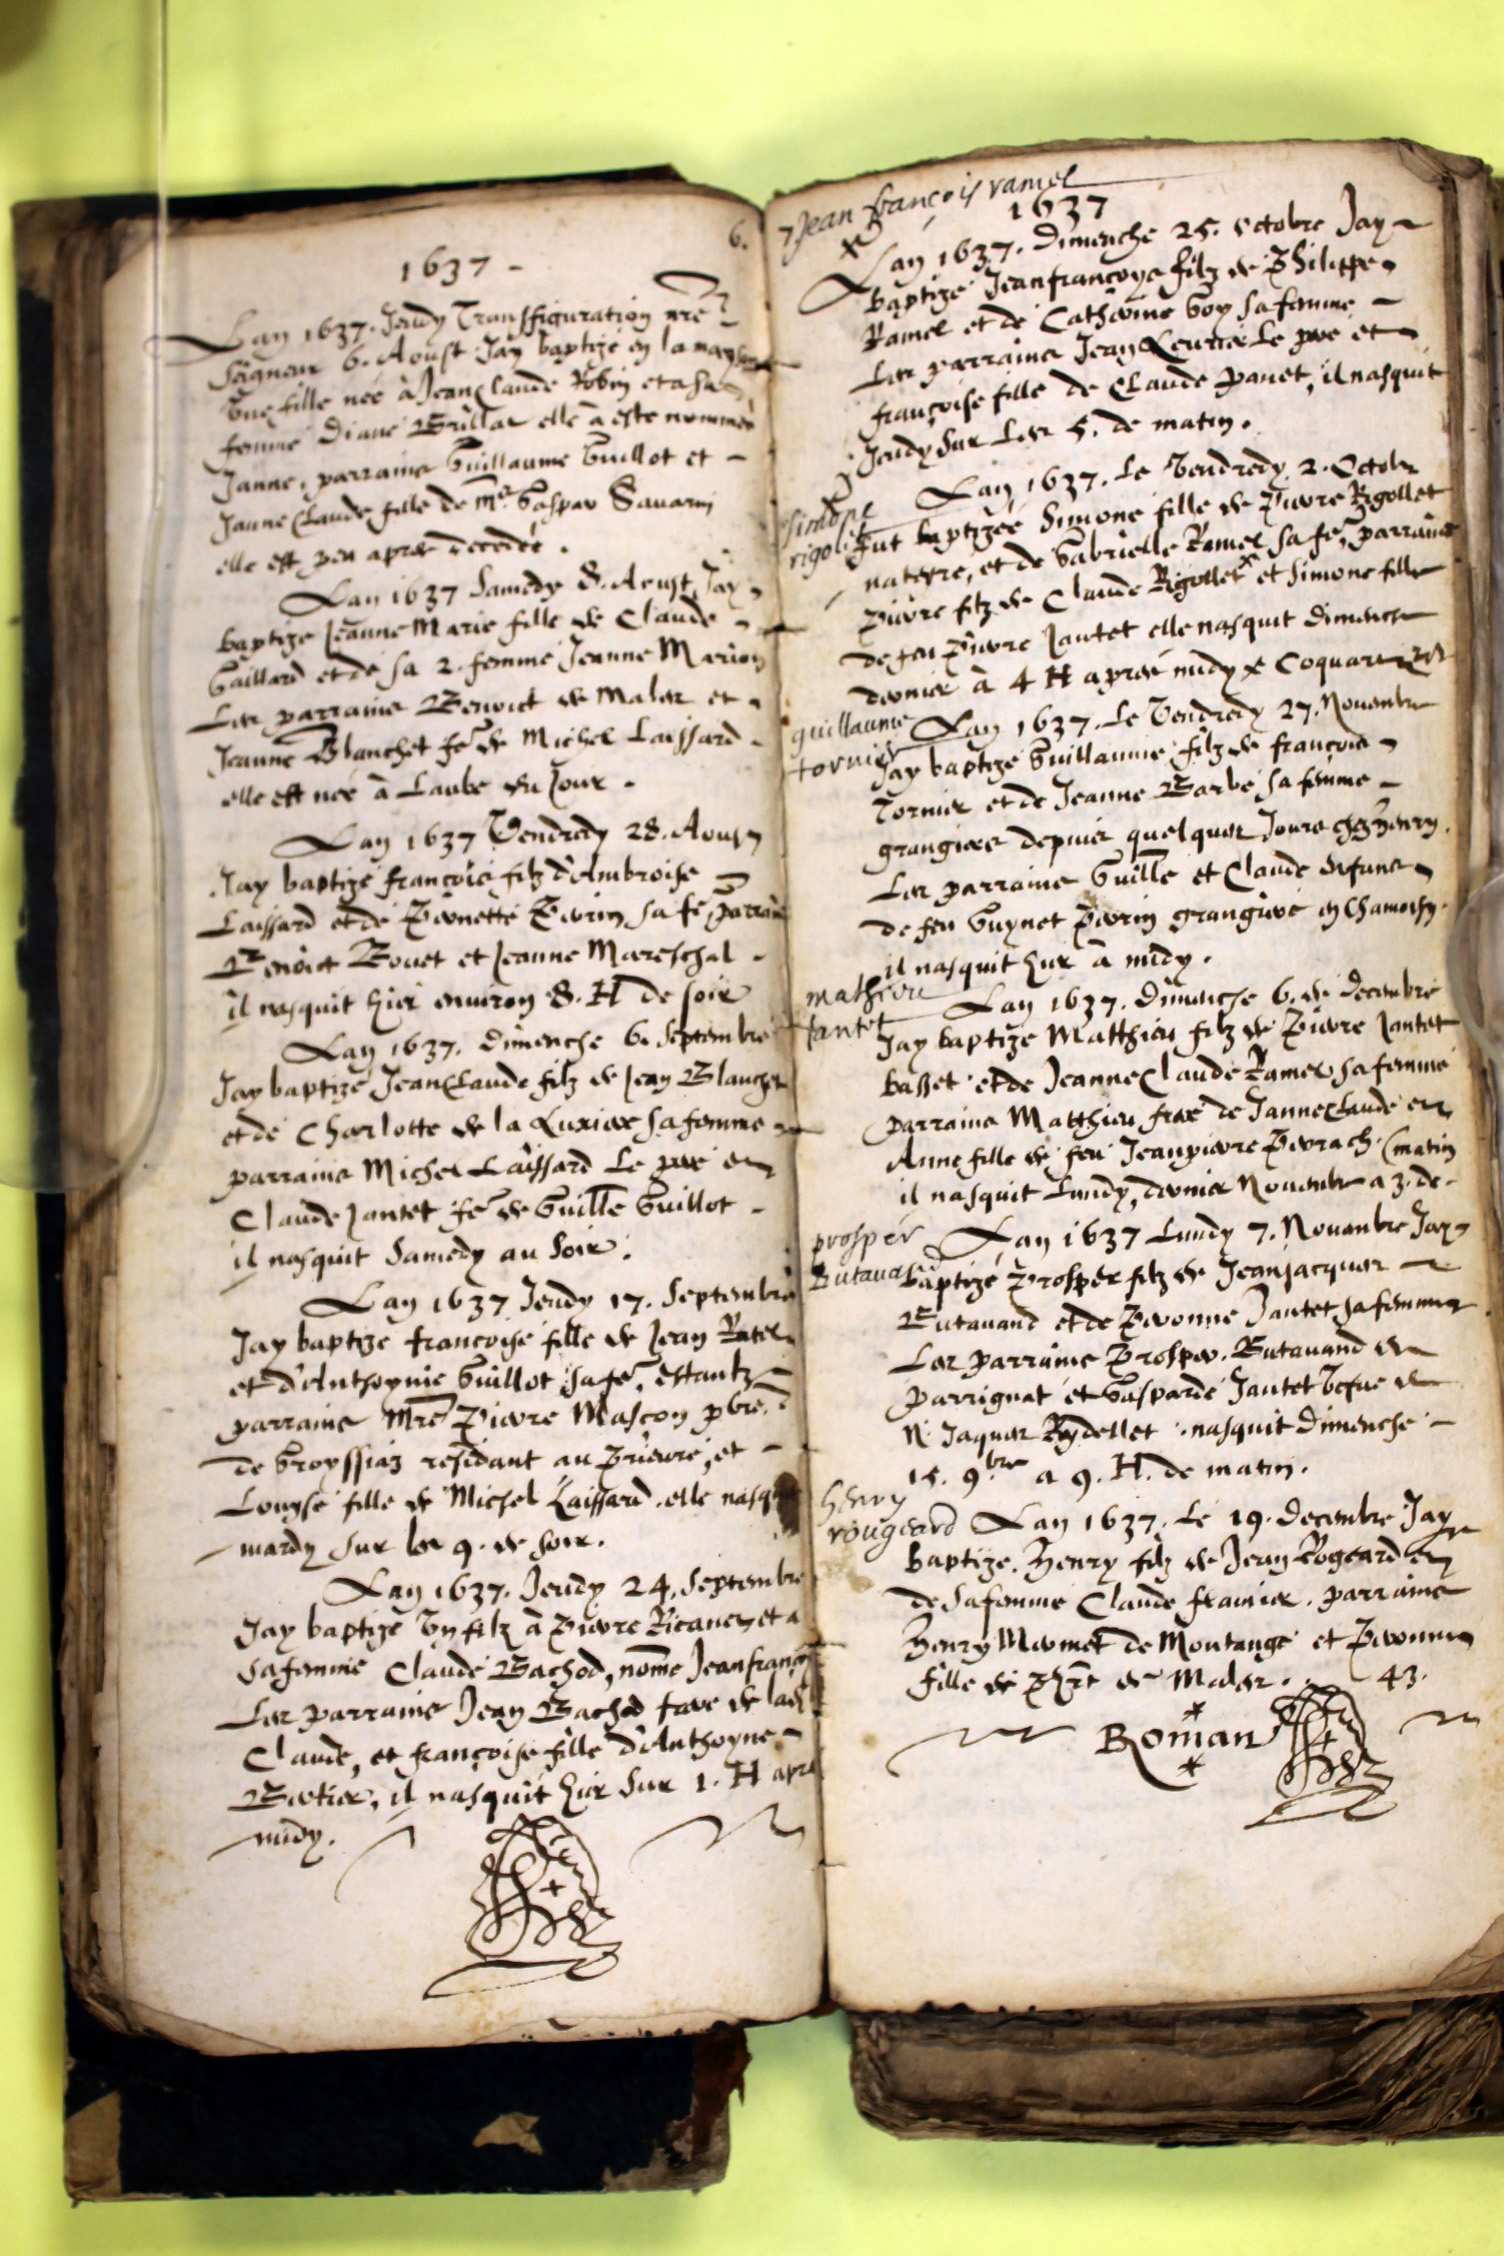 6.
1637 -
Lan 1637. Jeudy Transffiguration nre
Seigneur 6. Aoust Jay baptizé en la mayson
une fille née à Jeanclaude Robin et a sa
femme Diane Brillat elle a este nommée
Janne, parrains Guillaume Guillot et
Janne Claude fille de me Gaspar Savarin
elle est peu apres decedée.
Lan 1637 Samedy 8. Aoust Jay
baptize Jeanne Marie fille de Claude
Gaillard et de sa 2. femme Jeanne Marion
Les parrains Benoict de Malar et
Jeanne Blanchet fe de Michel Laissard
elle est née à Laube du Jour.
Lan 1637 Vendredy 28. Aoust
Jay baptizé françois filz d'Ambroise
Laissard et de Pernette Perrin sa fe, parrains
Benoict Bouet et Jeanne Mareschal
il nasquit hier environ 8. H de soir
Lan 1637. Dimenche 6. Septembre
Jay baptizé Jeanclaude filz de Jean Blanchet
et de Charlotte de la sa femme
parrains Michel Laissard Le et
Claude Jantet fe de Guille Guillot
il nasquit Samedy au Soir.
Lan 1637 Jeudy 17. Septembre
Jay baptize françoise fille de Jean Ratel
et d'Anthoynie Guillot sa fe, estantz
parrains Mre Pierre Masçon pbre
de Groyssiaz residant au Prieuré, et
Louyse fille de Michel Laissard. elle nasquit
mardy sur les 9. de soir.
Lan 1637. Jeudy 24. Septembre
Jay baptizé un filz à Pierre et a
sa femme Claude Bachod, nomé Jeanfrançois
Les parrains Jean Bachod frere de lad
Claude, et françoise fille d'Anthoyne
Bertier, il nasquit hier sur 1. H apres
midy.
7 Jean françois ramel
1637
Lan 1637. Dimenche 25. Octobre Jay
baptizé Jeanfrançoys filz de Philippe
Ramel et de Catherine Goy sa femme
Les parrains Jean Le et
françoise fille de Claude panet, il nasquit
Jeudy sur Les 5. de matin.
simone
rigolet
Lan 1637. Le Vendredy 2. Octobr
fut baptizée Simone fille de Pierre Rigollet
et de Gabrielle Ramel sa fe, parrains
Pierre filz de Claude Rigollet x et Simone fille
de feu Pierre Jantet elle nasquit dimenche
dernier à 4 H apres midy x Coquare
guillaume
tornier
Lan 1637. Le Vendredy 27. Novembre
Jay baptizé Guillaume filz de françois
Tornier et de Jeanne Barbe sa femme
grangiers depuis quelques Jours chez henry.
Les parrains Guille et Claude
de feu Guynet Perrin grangiere en Chamoisy.
il nasquit hier à midy.
mathieu
Jantet
Lan 1637. Dimenche 6. de decembre
Jay baptizé Matthieu filz de Pierre Jantet
basset et de Jeanneclaude Ramel sa femme
parrains Matthieu frere de Janneclaude et
Anne fille de feu Jeanpierre Perrach. (matin
il nasquit Lundy, dernier Novembre a 3. de
prosper
Butavand
Lan 1637 Lundy 7. Novembre Jay
baptizé Prosper filz de Jeanjacques
Butavand et de Pernonne Jantet sa femme
Les parrains Prosper Butavand de
parrignat et Gasparde Jantet vefve de
N. Jaques Rydellet. nasquit dimenche
15. 9.bre a 9. H. de matin.
henry
rougeard
Lan 1637. Le 19. decembre Jay
baptize. Henry filz de Jean Rogeard et
de sa femme Claude frainier. parrains
Henry Mermet de Montange et Pernonne
fille de de Malar. 43.
Roman